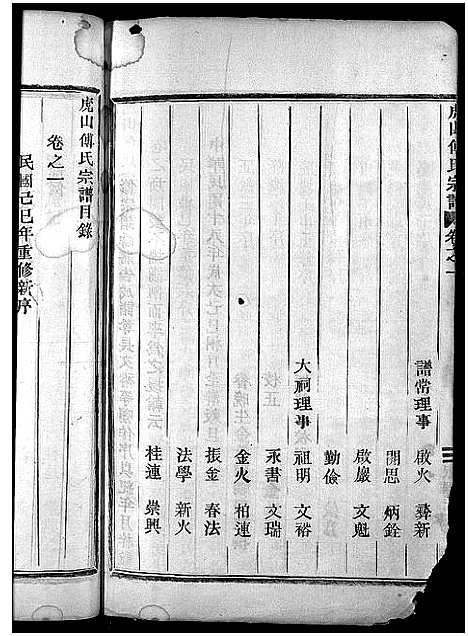 虎山傅氏宗譜 卷之一
譜常理事 啟火 彝新
開思 炳銓
啟嚴 文魁
勤儉
大祠理事 祖明 文裕
永書 文瑞
金火 柏連
振金 春法
法學 新火
桂連 崇興
虎山傅氏宗譜目錄
卷之一
民國己巳年重修新序